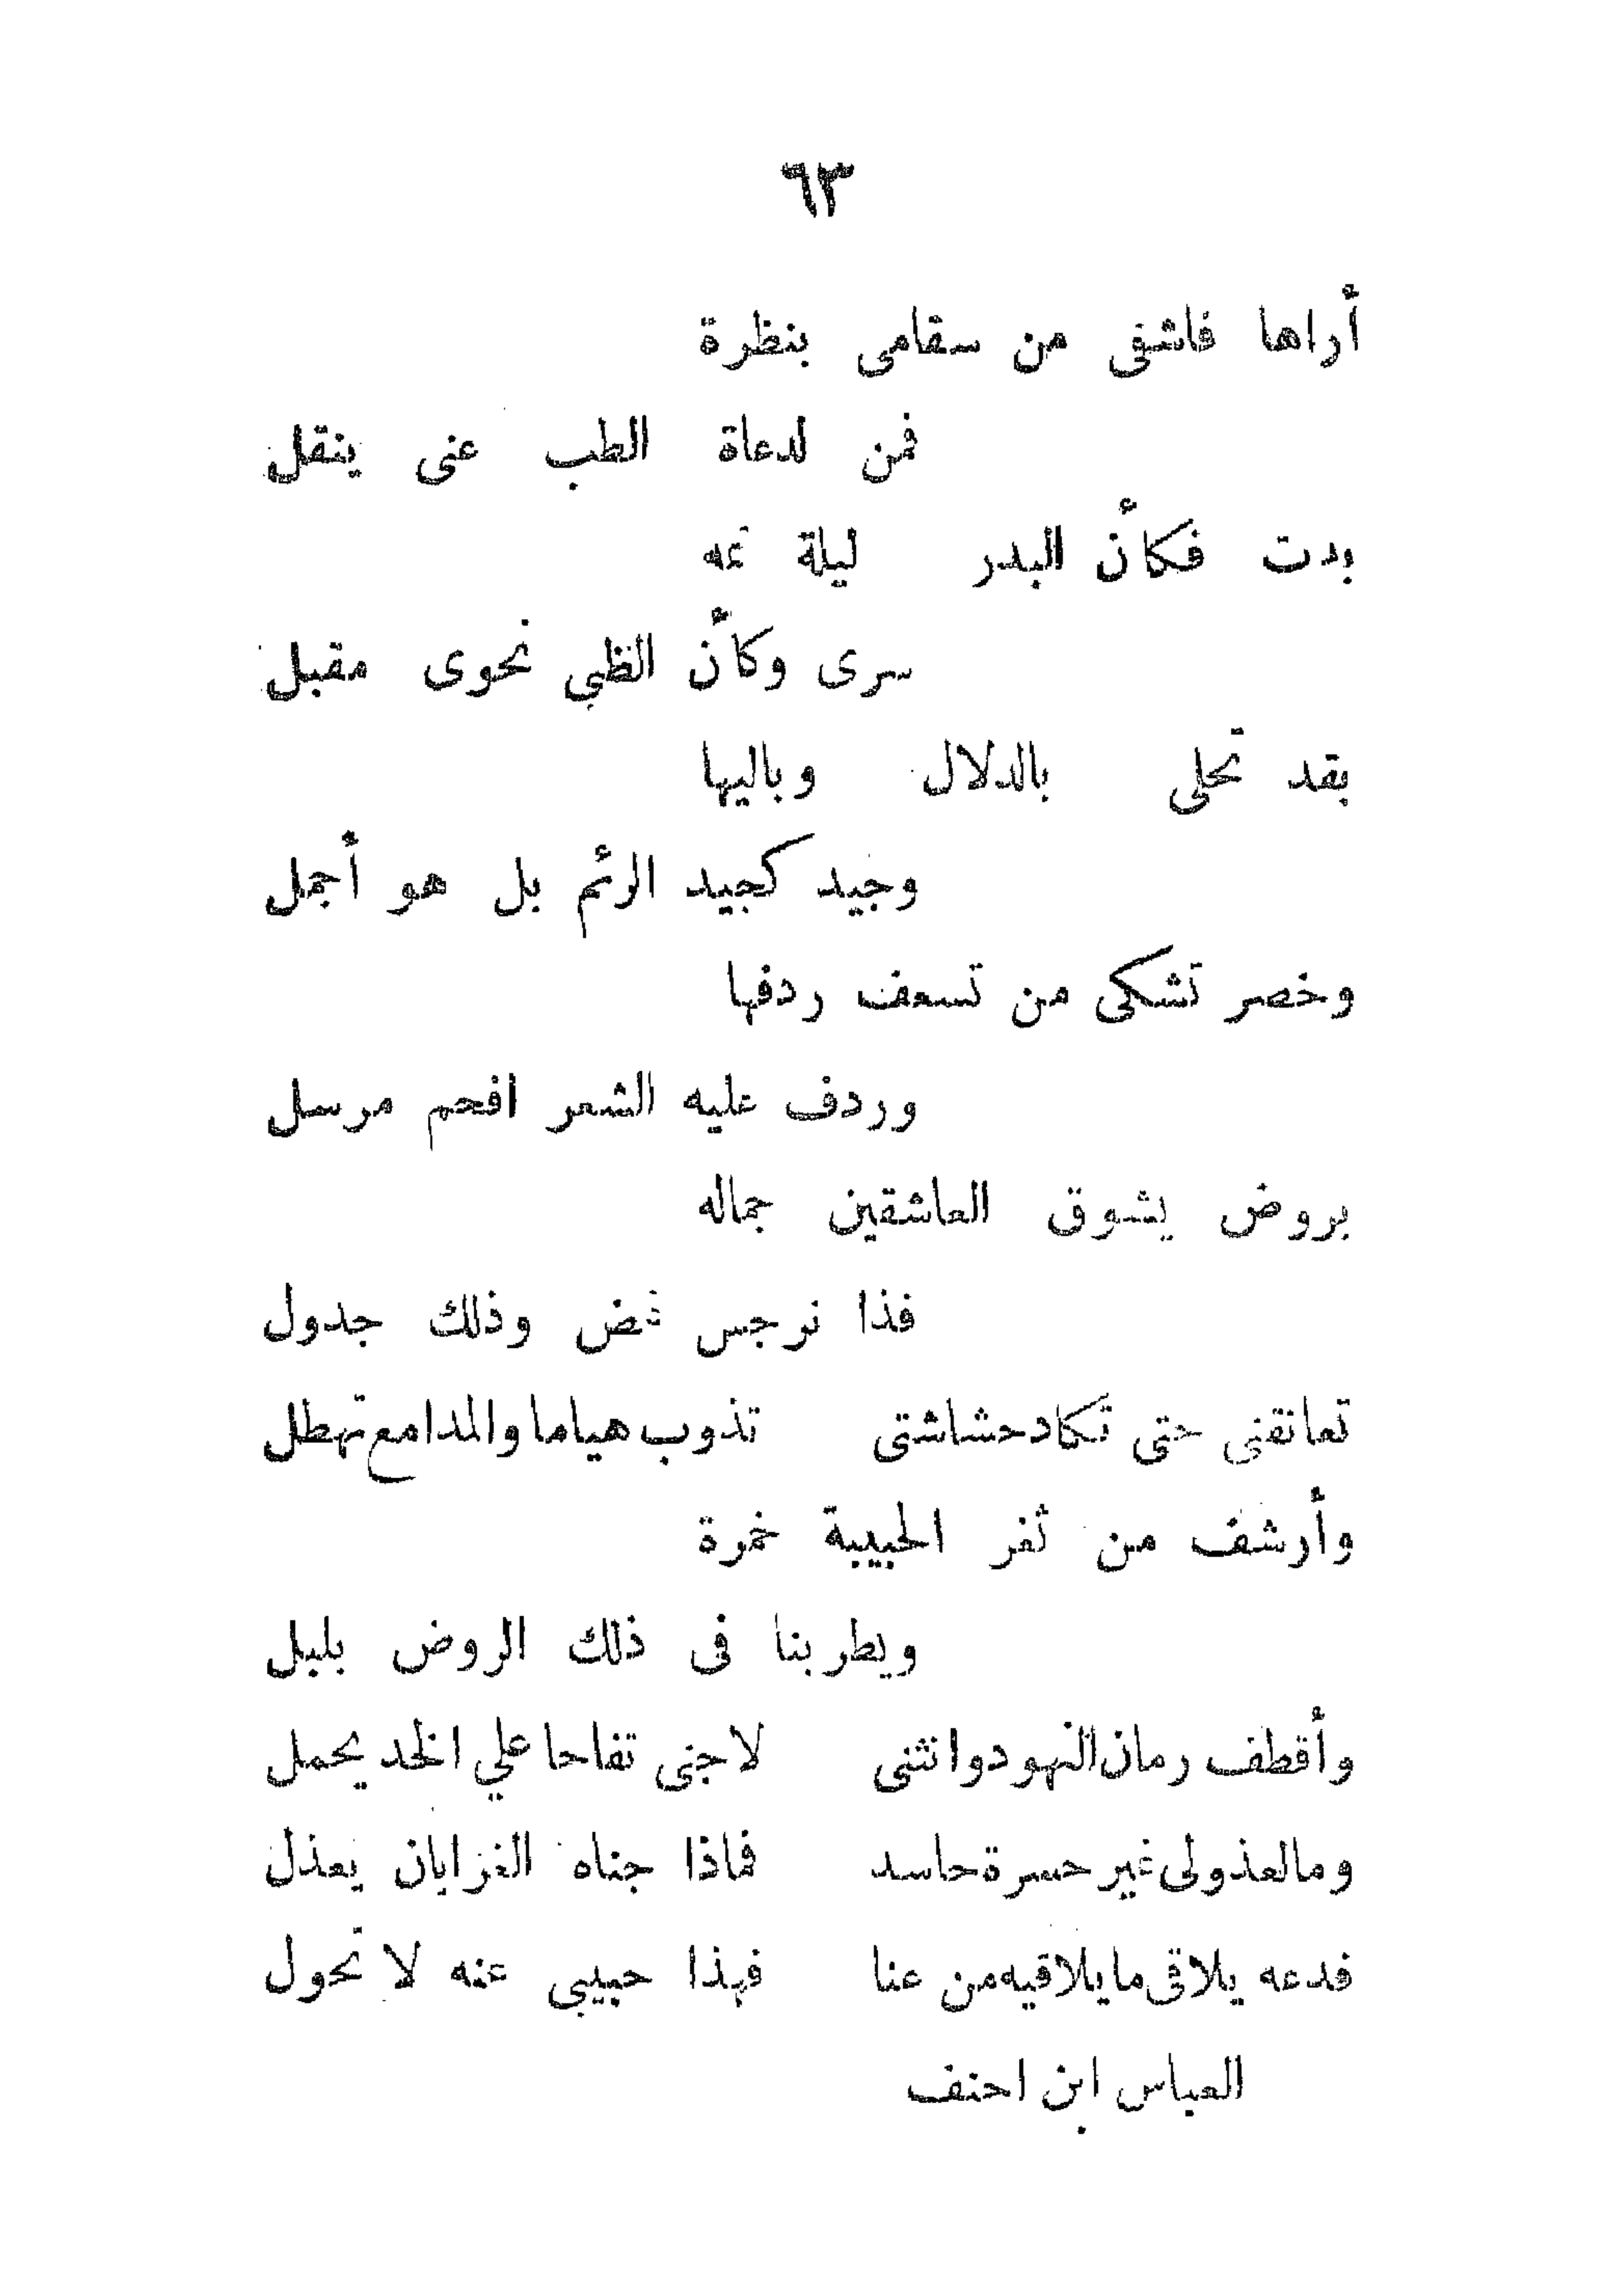 ٦٣
أراها فاشفى من سقامى بنظرة
فمن لدعاة الطب عنى ينقل
بدت فكأن البدر ليلة تمه
سرى وكأن الظبي نحوى مقبل
بقد تحلى بالدلال وباليها
وجيد كجيد الرئم بل هو أجمل
وخصر تشكى من تسعف ردفها
وردف عليه الشعر افحم مرسل
بروض يشوق العاشقين جماله
فذا نرجس غض وذلك جدول
تعانقنى حتى تكاد حشاشتى تذوب هياما والمدامع تهطل
وأرشف من ثغر الحبيبة خمرة
ويطربنا فى ذلك الروض بلبل
وأقطف رمان النهود وانثنى لاجنى تفاحا علي الخد يحمل
وما لعذولى غير حسرة حاسد فماذا جناه الغر ابان يعذل
فدعه يلاقى ما يلاقيه من عنا فهذا حبيبي عنه لا تحول
العباس ابن احنف